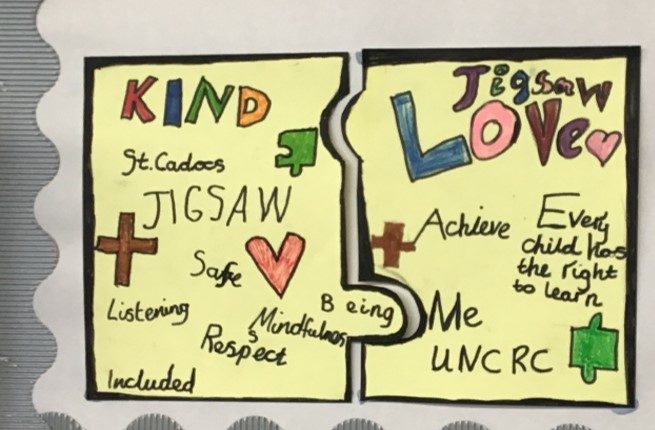 KIND
St. Cadocs
JIGSAW
Safe
Listening
Mindfulnes
s
Being
Respect
Included
Jigsaw
LOVe
Achieve
Every
child has
the right
to learn
Me
UNCRC